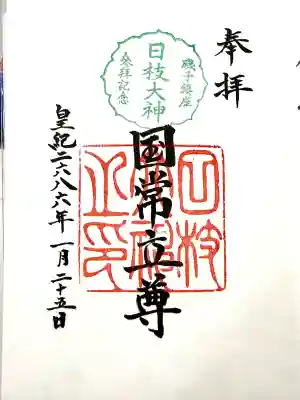 奉拝
磯子鎮座
日枝大神
参拝記念
国常立尊
日枝
神社
之印
皇紀二六八六年 一月 二十五日